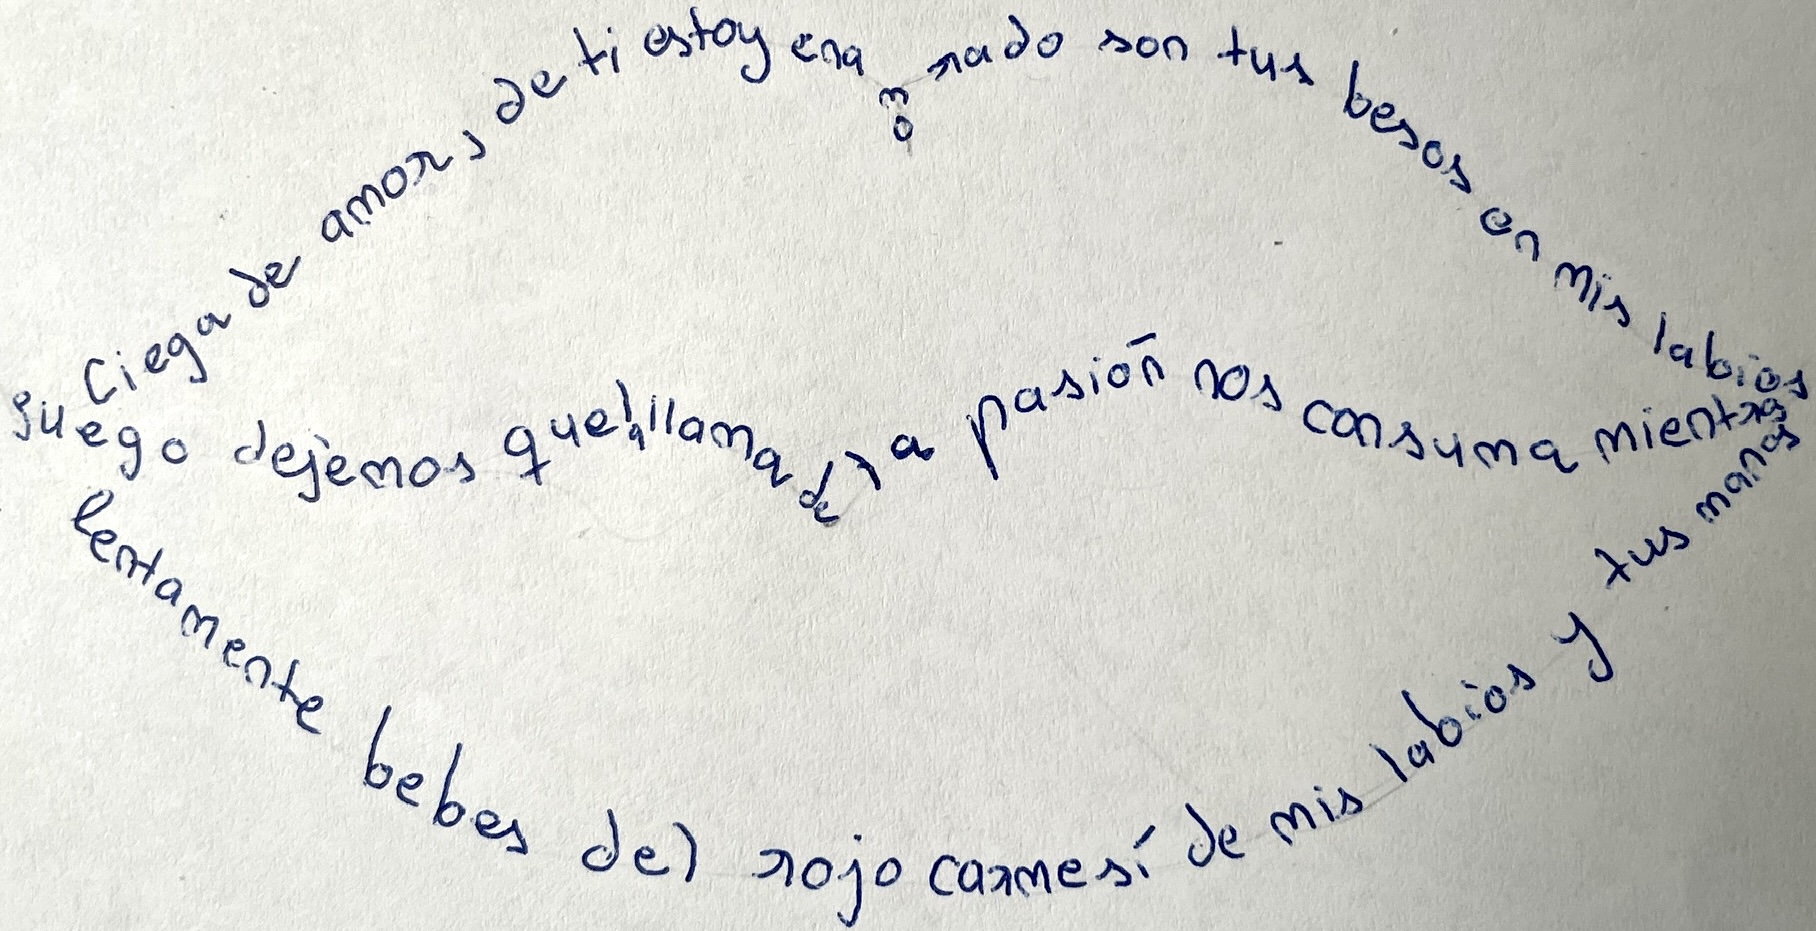 Ciega de amor, de ti estoy enamorado son tus besos en mis labios
fuego dejemos que la llama de la pasión nos consuma mientras
lentamente bebes del rojo carmesí de mis labios y tus manos